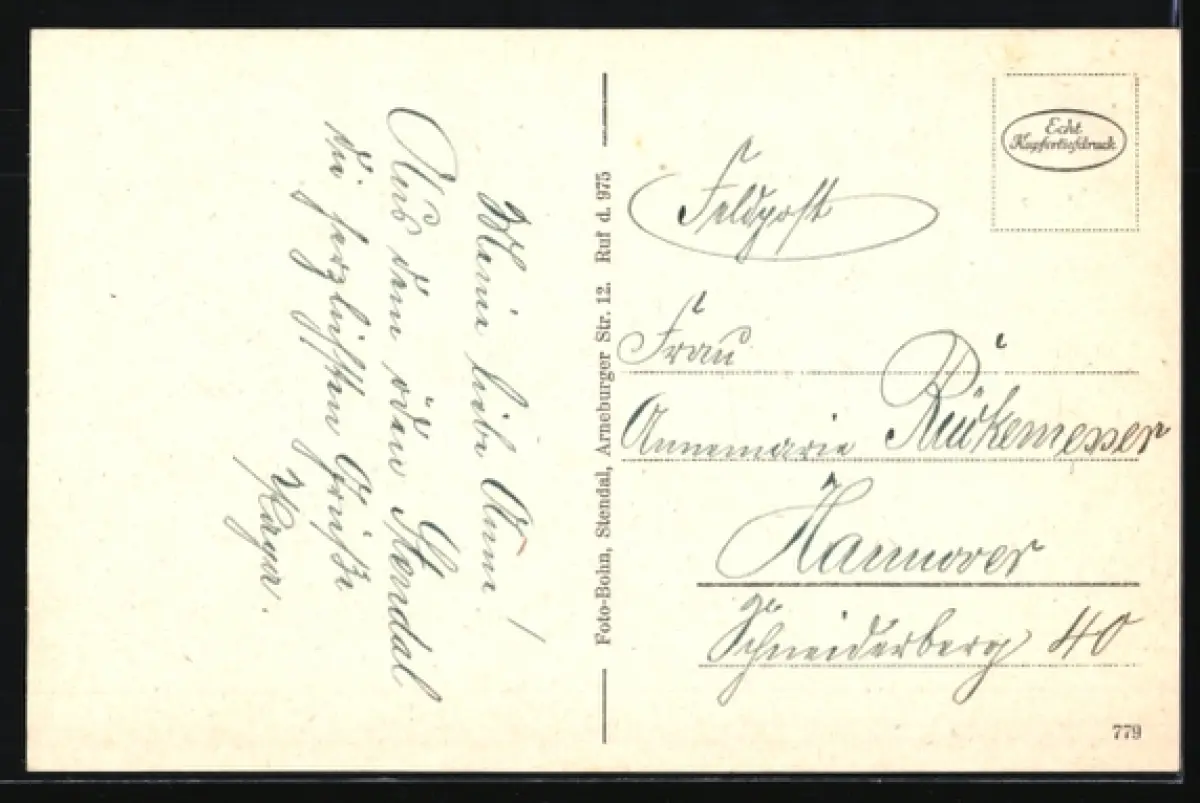 Meine liebe Anne!
Aus dem öden Stendal
die herzlichsten Grüße
Foto-Bohn, Stendal, Arneburger Str. 12. Ruf d. 975
Echt
Kupfertiefdruck
Feldpost
Frau
Annemarie Rüdkemesser
Hannover
Schneiderberg 40
779